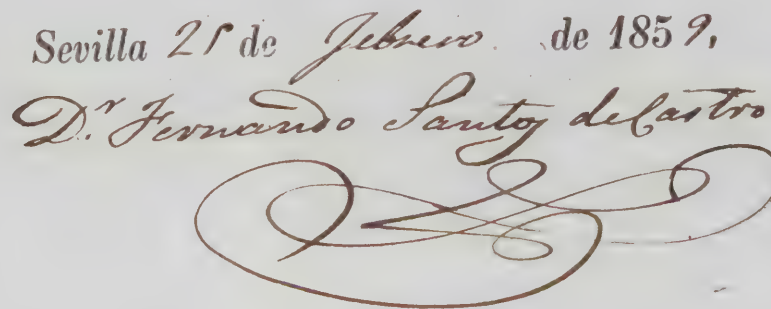 Sevilla 25 de Febrero de 1859.
D.r Fernando Santos de Castro